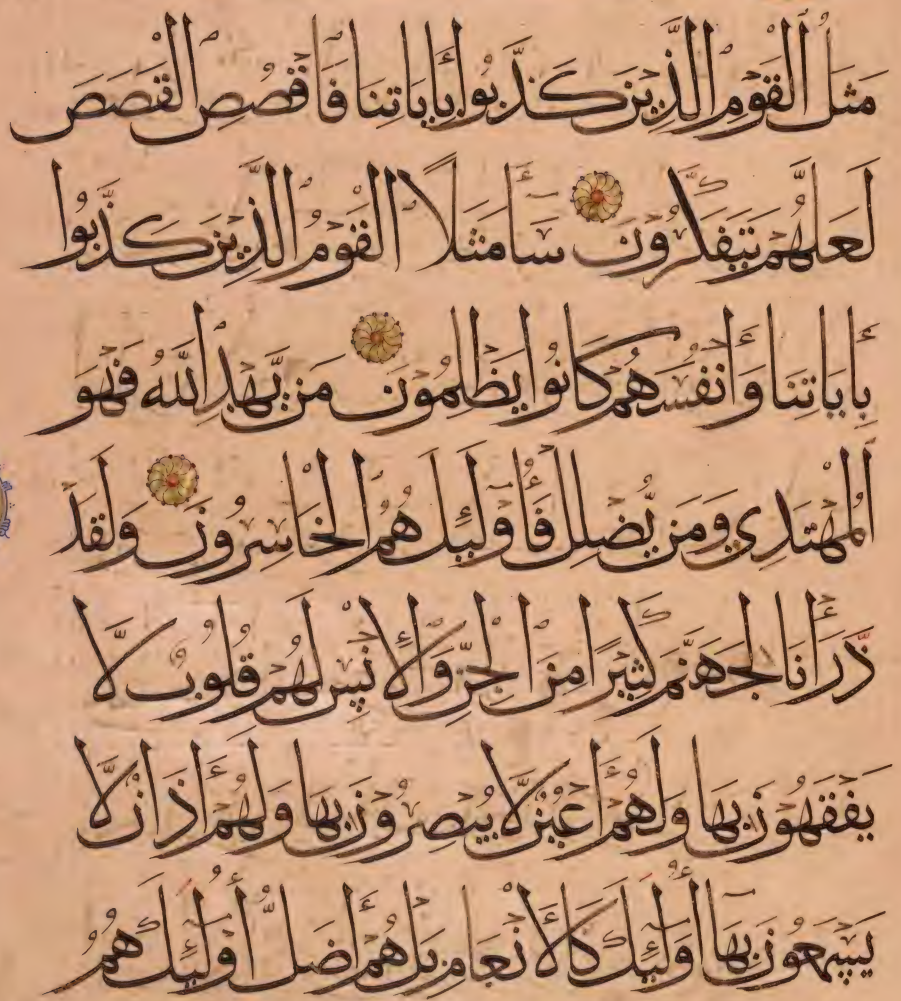 مَثَلُ الْقَوْمِ الَّذِينَ كَذَّبُوا بِآيَاتِنَا فَاقْصُصِ الْقَصَصَ
لَعَلَّهُمْ يَتَفَكَّرُونَ سَاءَ مَثَلًا الْقَوْمُ الَّذِينَ كَذَّبُوا
بِآيَاتِنَا وَأَنْفُسَهُمْ كَانُوا يَظْلِمُونَ مَنْ يَهْدِ اللَّهُ فَهُوَ
الْمُهْتَدِي وَمَنْ يُضْلِلْ فَأُولَئِكَ هُمُ الْخَاسِرُونَ وَلَقَدْ
ذَرَأْنَا لِجَهَنَّمَ كَثِيرًا مِنَ الْجِنِّ وَالْإِنْسِ لَهُمْ قُلُوبٌ لَّا
يَفْقَهُونَ بِهَا وَلَهُمْ أَعْيُنٌ لَّا يُبْصِرُونَ بِهَا وَلَهُمْ آذَانٌ لَّا
يَسْمَعُونَ بِهَا أُولَئِكَ كَالْأَنْعَامِ بَلْ هُمْ أَضَلُّ أُولَئِكَ هُمُ